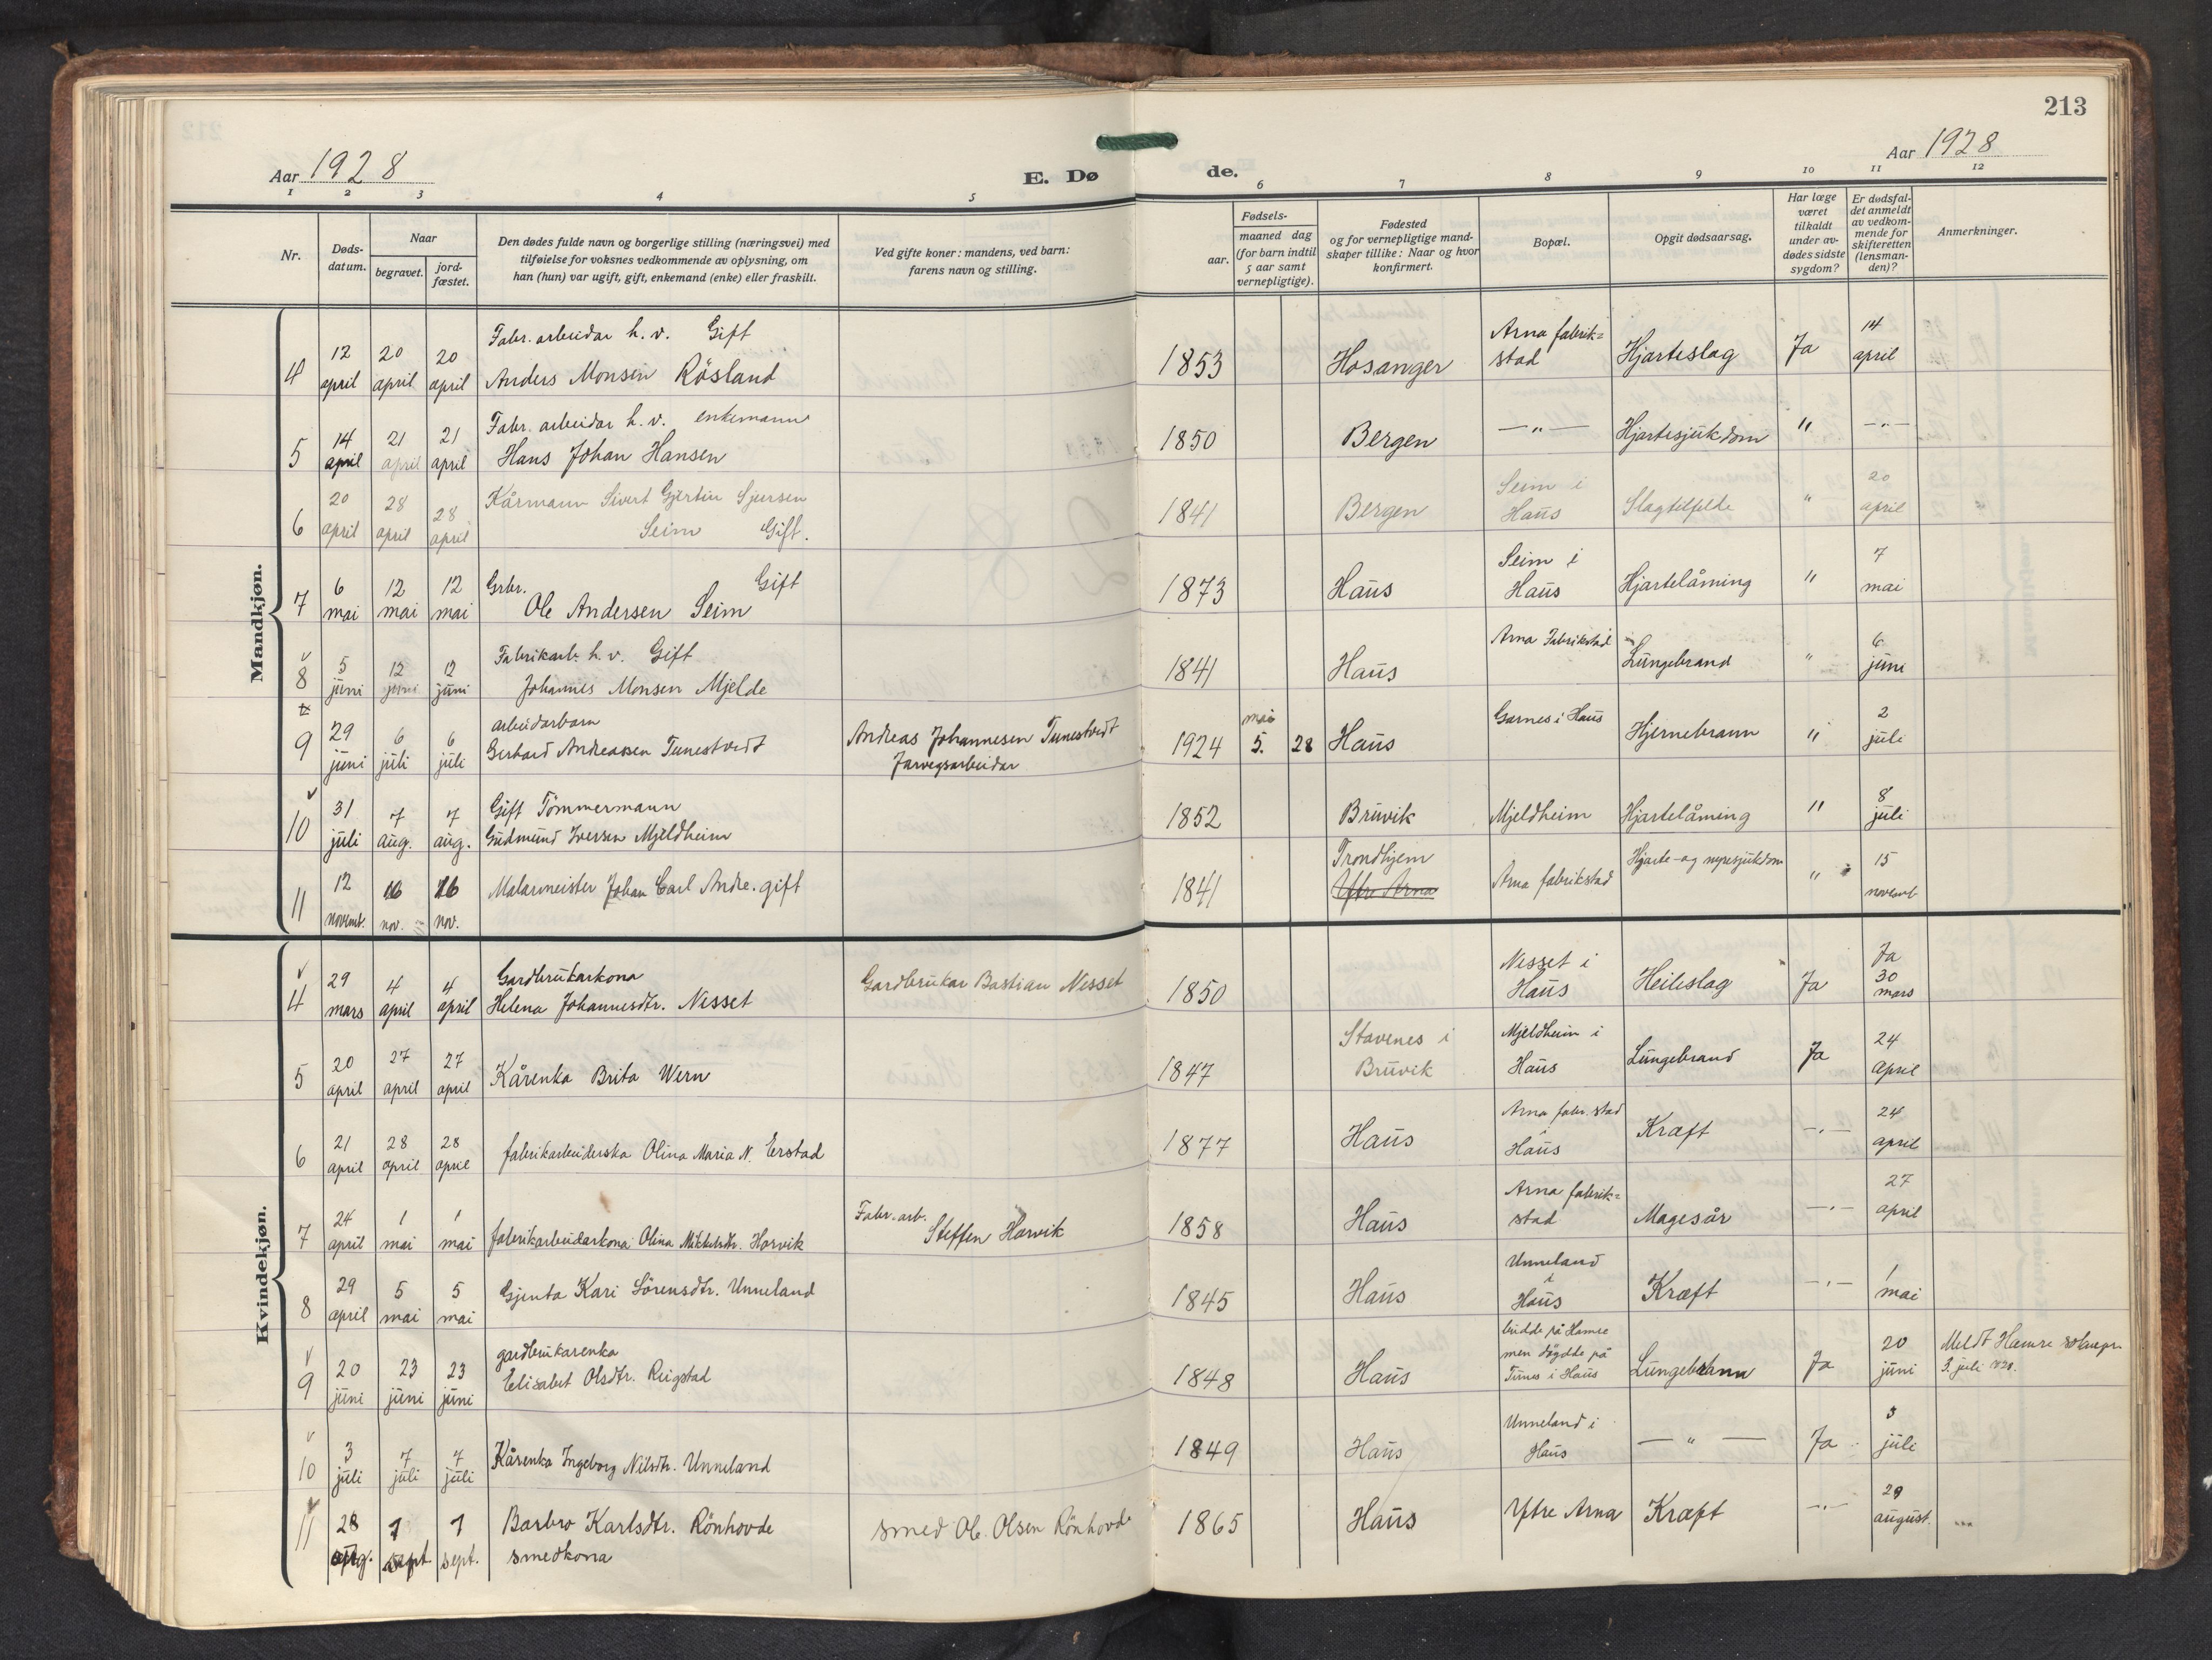 213
Aar 1928
E. Dø de.
Aar 1928
1 2 3 4 5 6 7 8 9 10 11 12
Nr.
Døds-
datum.
Naar
begravet.
jord-
fæstet.
Den dødes fulde navn og borgerlige stilling (næringsvei) med
tilføielse for voksnes vedkommende av oplysning, om
han (hun) var ugift, gift, enkemand (enke) eller fraskilt.
Ved gifte koner: mandens, ved barn:
farens navn og stilling.
Fødsels-
aar.
maaned dag
(for barn indtil
5 aar samt
vernepligtige).
Fødested
og for vernepligtige mand-
skaper tillike: Naar og hvor
konfirmert.
Bopæl.
Opgit dødsaarsag.
Har læge
været
tilkaldt
under av-
dødes sidste
sygdom?
Er dødsfal-
det anmeldt
av vedkom-
mende for
skifteretten
(lensman-
den)?
Anmerkninger.
Mandkjøn.
4 12 april 20 april 20 april Fabr. arbeidar h. v. Gift
Anders Monsen Røsland 1853 Hosanger Arna fabrik=
stad Hjarteslag Ja 14 april
5 14 april 21 april 21 april Fabr. arbeidar h. v. enkemann
Hans Johan Hansen 1850 Bergen —"— Hjartesjukdom " —"—
6 20 april 28 april 28 april Kårmann Sivert Gjertin Sjursen
Seim Gift. 1841 Bergen Seim i
Haus Slagtilfelde " 20 april
7 6 mai 12 mai 12 mai Grbr. Gift
Ole Andersen Seim 1873 Haus Seim i
Haus Hjartelåming " 7 mai
8 5 juni 12 juni 12 juni Fabrikarb. h. v. Gift
Johannes Monsen Mjelde 1841 Haus Arna Fabrikstad Lungebrand " 6 juni
9 29 juni 6 juli 6 juli arbeidarbarn
Gerhard Andreassen Tunestvedt Andreas Johannesen Tunestvedt
Jarvegsarbeidar 1924 mai 5. 28 Haus Garnes i Haus Hjernebrann " 2 juli
10 31 juli 7 aug. 7 aug. Gift Tømmermann
Gudmund Iversen Mjeldheim 1852 Bruvik Mjeldheim Hjartelåming " 8 juli
11 12 novemb. 16 nov. 16 nov. Malarmeister Johan Carl Andre. gift 1841 Trondhjem
Ytre Arna Arna fabrikstad Hjarte- og nyresjukdom " 15 novemb
Kvindekjøn.
4 29 mars 4 april 4 april Gardbrukarkona
Helena Johannesdtr. Nesset Gardbrukar Bastian Nesset 1850 Nesset i
Haus Heileslag Ja Ja 30 mars
5 20 april 27 april 27 april Kårenka Brita Wern 1847 Stavenes i
Bruvik Mjeldheim i
Haus Lungebrand Ja 24 april
6 21 april 28 april 28 april fabrikarbeiderska Olina Maria N. Erstad 1877 Haus Arna fabr. stad
i
Haus Kræft —"— 24 april
7 24 april 1 mai 1 mai fabrikarbeidarkona Olina Mikkelsdtr. Horvik Fabr. arb.
Steffen Horvik 1858 Haus Arna fabrik=
stad Magesår —"— 27 april
8 29 april 5 mai 5 mai Gjenta Kari Sørensdtr. Unneland 1845 Haus Unneland
i
Haus Kræft —"— 1 mai
9 20 juni 23 juni 23 juni gardbrukarenka
Elisabet Olsdtr. Ringstad 1848 Haus budde på Hamre
men døydde på
Tunes i Haus Lungebrann Ja 20 juni Meldt Hamre
3. juli
10 3 juli 7 juli 7 juli Kårenka Ingeborg Nilsdtr. Unneland 1849 Haus Unneland i
Haus —"— Ja 3 juli
11 28 aug. 1 sept. 1 sept. Barbro Karlsdtr. Rønhovde
smedkona smed Ole Olsen Rønhovde 1865 Haus Ytre Arna Kræft —"— 29 august.